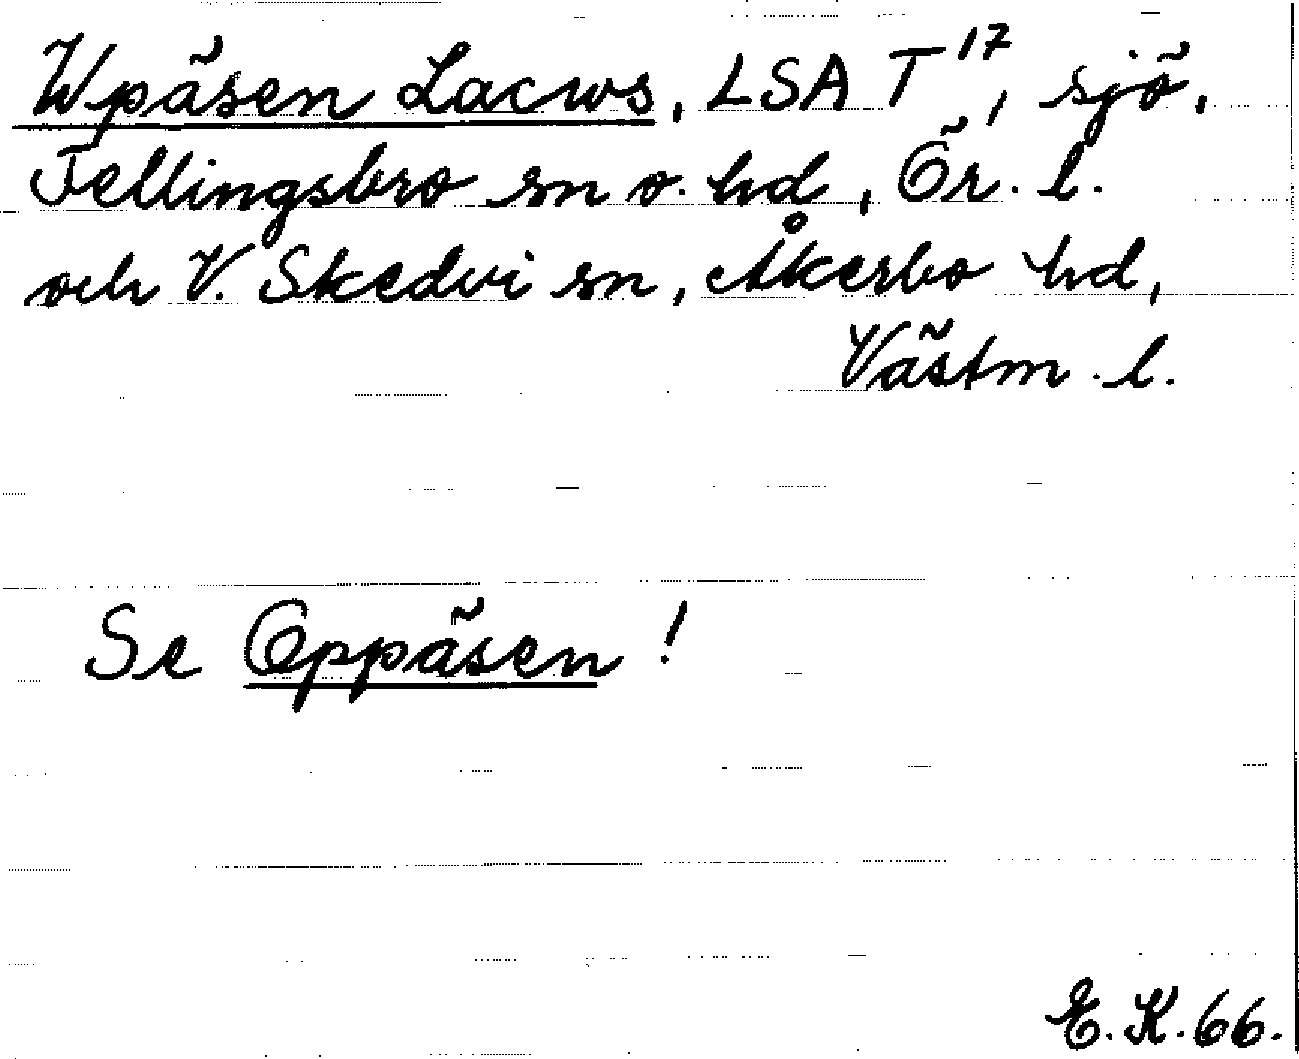 Wpäsen Lacws, LSA T 17, sjö,
Fellingsbro sn o. hd, Ör. l.
och V. Skedvi sn, Åkerbo hd,
Västm. l.
Se Oppäsen!
E. K. 66.